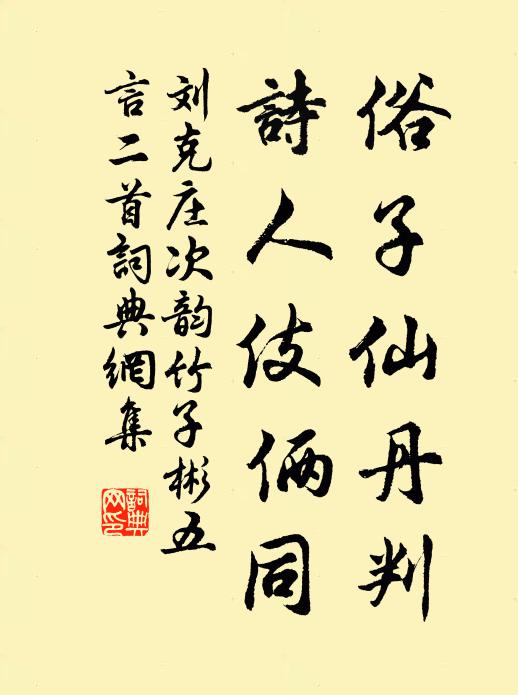 俗子仙丹判
詩人伎倆同
刘克庄次韵竹子彬五
言二首詞典網集
詞典
网印